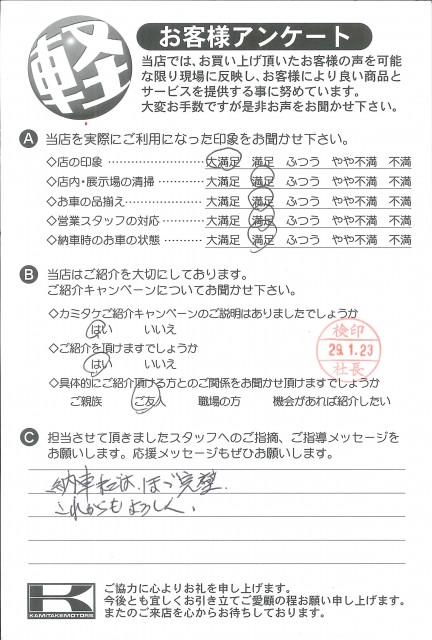 軽
お客様アンケート
当店では、お買い上げ頂いたお客様の声を可能
な限り現場に反映し、お客様により良い商品と
サービスを提供する事に努めています。
大変お手数ですが是非お声をお聞かせ下さい。
A 当店を実際にご利用になった印象をお聞かせ下さい。
◇店の印象 ……………………… 大満足 満足 ふつう やや不満 不満
◇店内・展示場の清掃 ………… 大満足 満足 ふつう やや不満 不満
◇お車の品揃え………………… 大満足 満足 ふつう やや不満 不満
◇営業スタッフの対応 ………… 大満足 満足 ふつう やや不満 不満
◇納車時のお車の状態 ………… 大満足 満足 ふつう やや不満 不満
B 当店はご紹介を大切にしております。
ご紹介キャンペーンについてお聞かせ下さい。
◇カミタケご紹介キャンペーンのご説明はありましたでしょうか
はい いいえ
◇ご紹介を頂けますでしょうか
はい いいえ
検印
29.1.23
社長
◇具体的にご紹介頂ける方とのご関係をお聞かせ頂けますでしょうか
ご親族 ご友人 職場の方 機会があれば紹介したい
C 担当させて頂きましたスタッフへのご指摘、ご指導メッセージを
お願いします。応援メッセージもぜひお願いします。
納車 ほぼ完璧.
これからもよろしく.
K
KAMITAKEMOTORS
ご協力に心よりお礼を申し上げます。
今後とも宜しくお引き立てご愛顧の程お願い申し上げます。
またのご来店を心からお待ちしております。